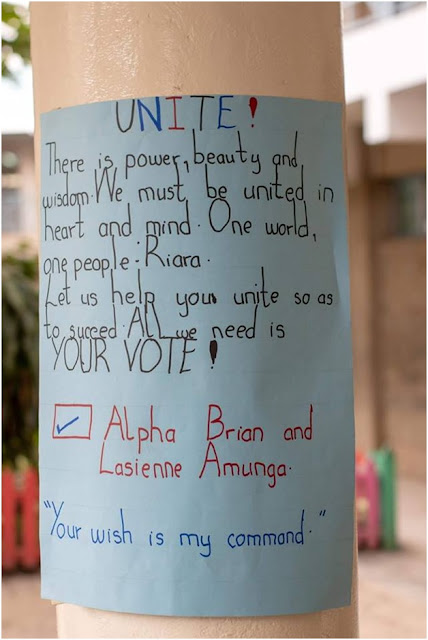 UNITE!
There is power, beauty and
wisdom. We must be united in
heart and mind. One world,
one people: Riara.
Let us help you unite so as
to succeed. ALL we need is
YOUR VOTE!
Alpha Brian and
Lasienne Amunga.
"Your wish is my command."